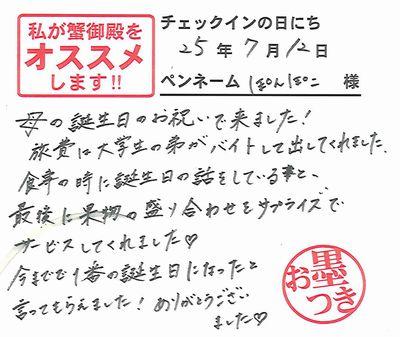 私が蟹御殿を
オススメ
します!!
チェックインの日にち
25年7月12日
ペンネーム ぽんぽこ 様
母の誕生日のお祝いで来ました!
旅費は大学生の弟がバイトして出してくれました。
食事の時に誕生日の話をしている事と、
最後に果物の盛り合わせをサプライズで
サービスしてくれました♡
今までで1番の誕生日になったと
言ってもらえました!ありがとうござい
ました♡
お墨つき